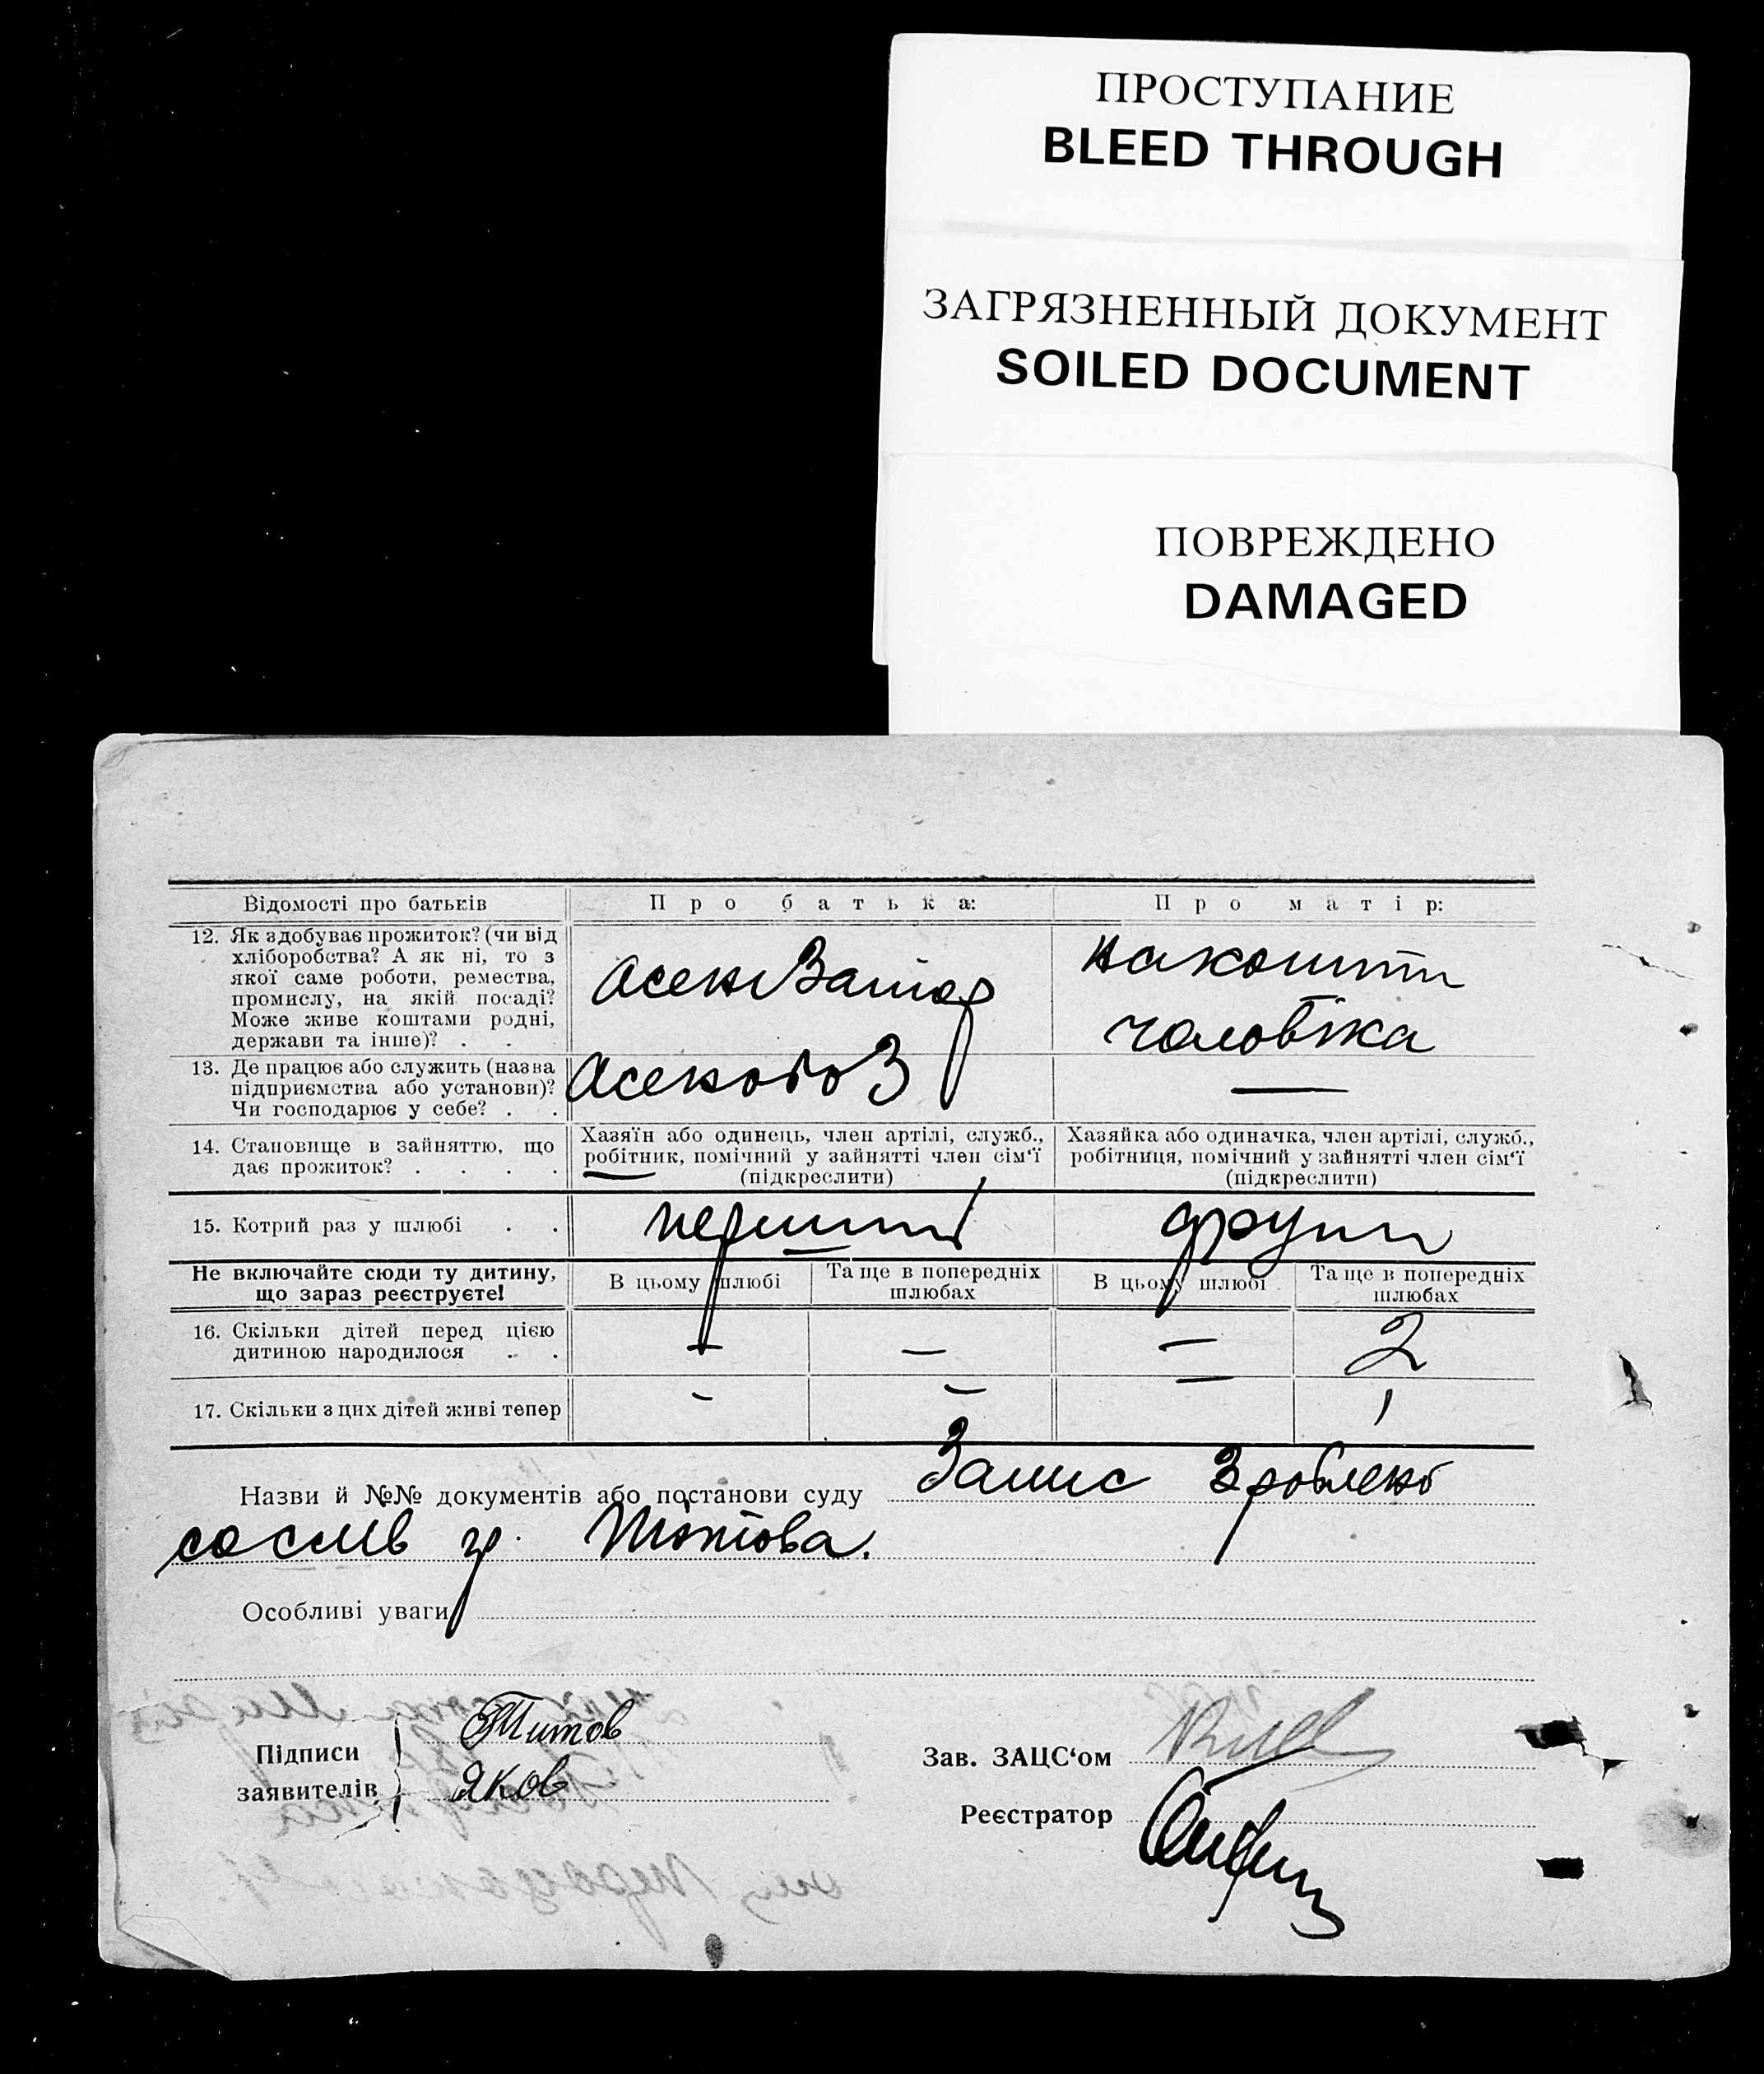 ПРОСТУПАНИЕ
BLEED THROUGH
ЗАГРЯЗНЕННЫЙ ДОКУМЕНТ
SOILED DOCUMENT
ПОВРЕЖДЕНО
DAMAGED
Відомості про батьків
Про батька:
Про матір:
12. Як здобуває прожиток? (чи від
хліборобства? А як ні, то з
якої саме роботи, ремества,
промислу, на якій посаді?
Може живе коштами родні,
держави та інше)? . .
АсенЗатор
на кошти
чоловіка
13. Де працює або служить (назва
підприємства або установи)?
Чи господарює у себе? . .
Асенобоз
—
14. Становище в зайняттю, що
дає прожиток? . . . .
Хазяїн або одинець, член артілі, служб.,
робітник, помічний у зайнятті член сім'ї
(підкреслити)
Хазяйка або одиначка, член артілі, служб.,
робітниця, помічний у зайнятті член сім'ї
(підкреслити)
15. Котрий раз у шлюбі . .
перший
други
Не включайте сюди ту дитину,
що зараз реєструєте!
В цьому шлюбі
Та ще в попередніх
шлюбах
В цьому шлюбі
Та ще в попередніх
шлюбах
16. Скільки дітей перед цією
дитиною народилося . .
— — — 2
17. Скільки з цих дітей живі тепер
— — — 1
Назви й №№ документів або постанови суду Запис зроблено
со слів гр. Тітова.
Особливі уваги
Підписи
заявителів
Титов
Яков
Зав. ЗАЦС'ом
Реєстратор